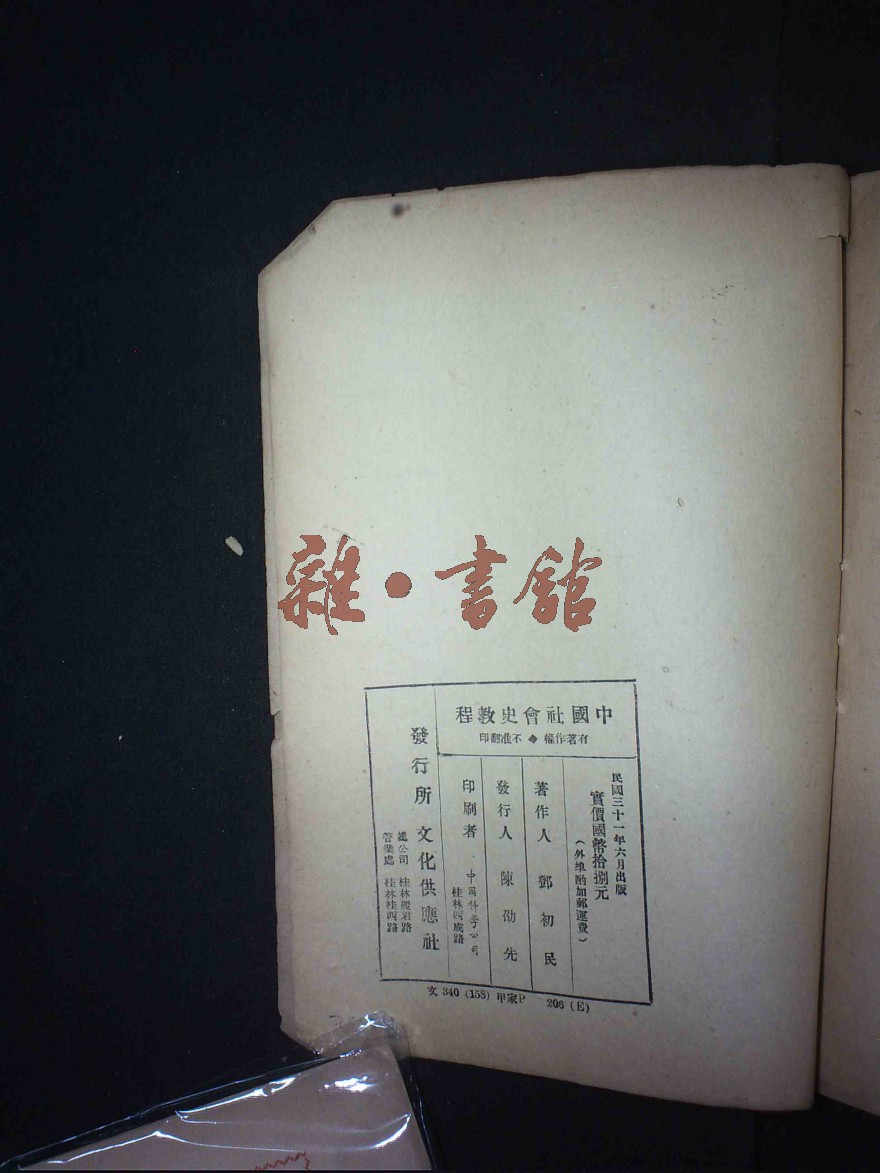 雜·書館
中國社會史教程
有著作權◆不准翻印
民國三十一年六月出版
實價國幣拾捌元
(外埠酌加郵運費)
著作人 鄧初民
發行人 陳劭先
印刷者 中國科學公司
桂林西成路
發行所 文化供應社
總公司 桂林麗君路
營業處 桂林桂西路
文 340 (158) 甲家P 206 (E)